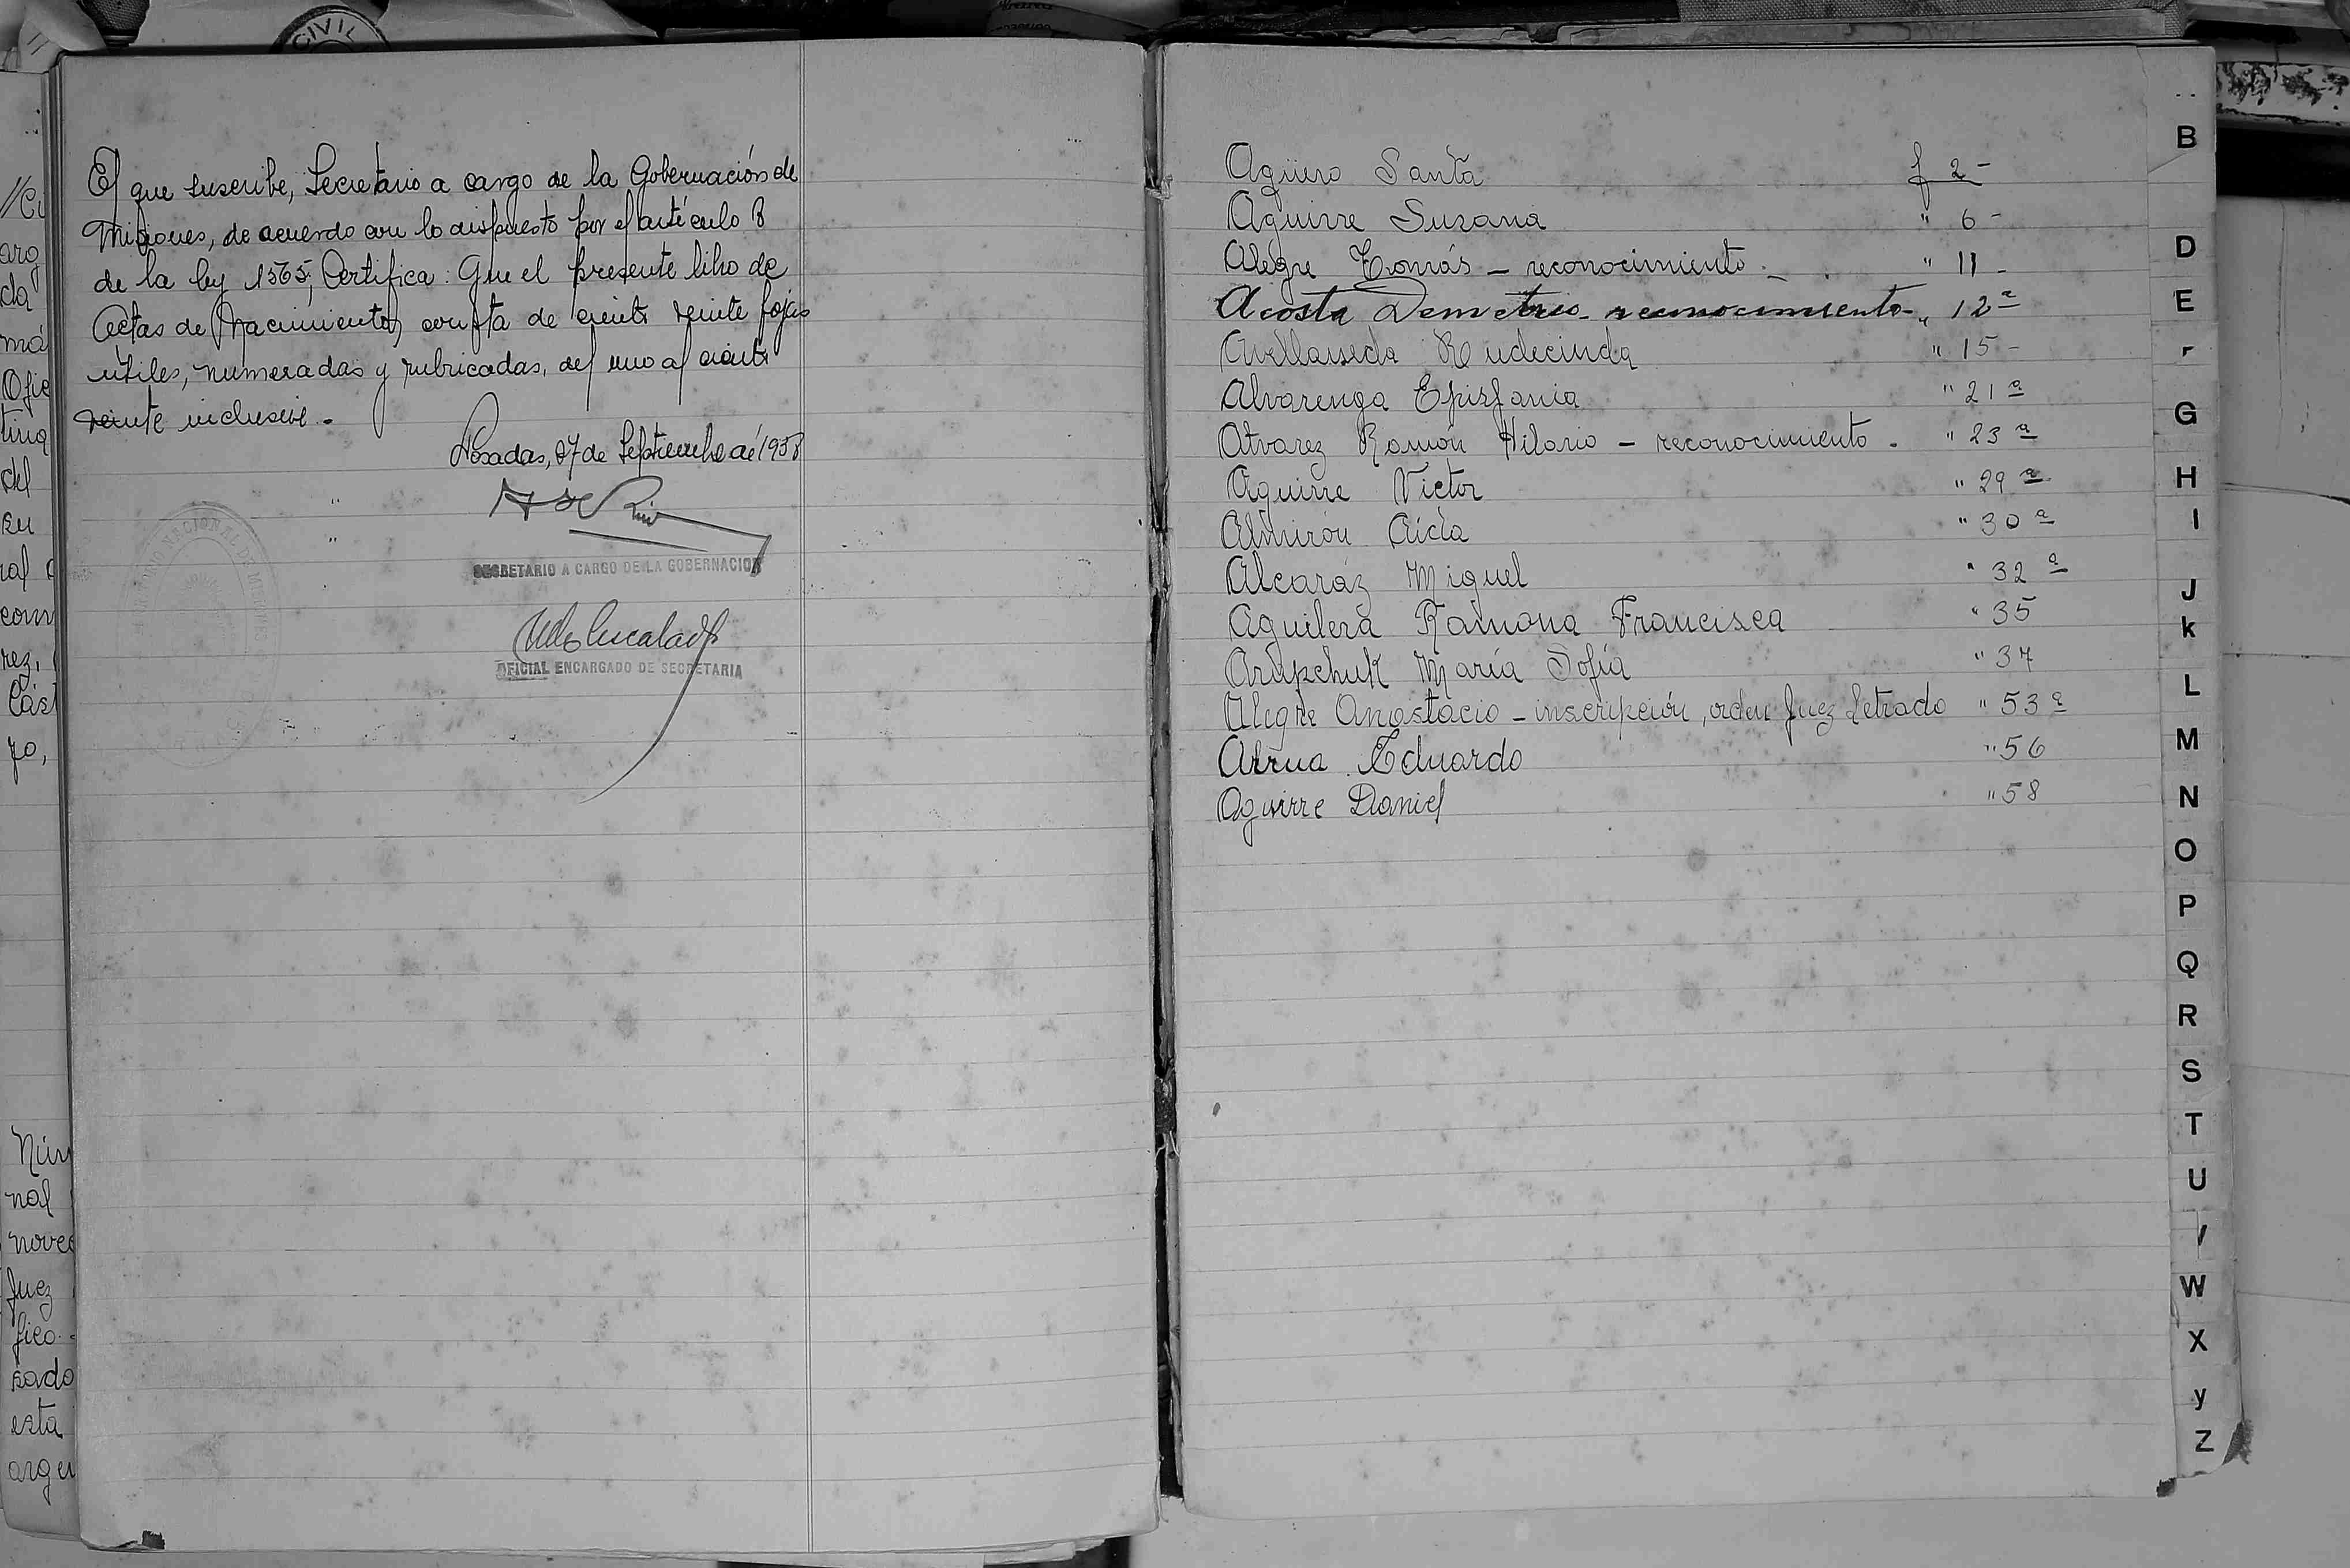 El que suscribe, Secretario a cargo de la Gobernación de
Misiones, de acuerdo con lo dispuesto por el artículo 8
de la ley 1565, Certifica: Que el presente libro de
Actas de Nacimientos, consta de ciento veinte fojas
útiles, numeradas y rubricadas, del uno al ciento
veinte inclusive.-
Posadas, 27 de Septiembre de 1938
SECRETARIO A CARGO DE LA GOBERNACION
OFICIAL ENCARGADO DE SECRETARIA
Agüero Santa f 2-
Aguirre Susana " 6-
Alegre Tomás - reconocimiento.- " 11-
Acosta Demetrio - reconocimiento- " 12ª
Avellaneda Rudecinda " 15-
Alvarenga Epifania " 21ª
Alvarez Ramón Hilario - reconocimiento. " 23ª
Aguirre Victor " 29ª
Almirón Aida " 30ª
Alcaráz Miguel " 32ª
Aguilera Ramona Francisca " 35
Arapchuk María Sofía " 37
Alegre Anastacio - inscripción, orden Juez Letrado " 53ª
Arrua Eduardo " 56
Aguirre Daniel " 58
B
D
E
G
H
I
J
k
L
M
N
O
P
Q
R
S
T
U
W
X
y
Z
CIVIL